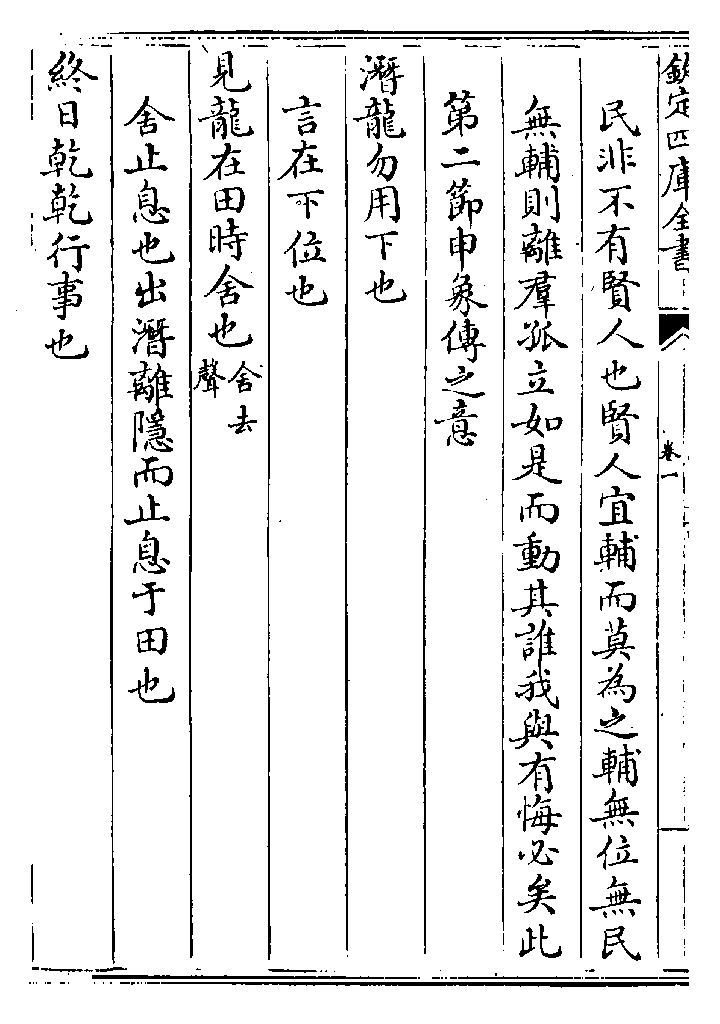 欽定四庫全書
卷一
民非不有賢人也賢人宜輔而莫為之輔無位無民
無輔則離羣孤立如是而動其誰我與有悔必矣此
第二節申象傳之意
潛龍勿用下也
言在下位也
見龍在田時舍也舍去聲
舍止息也出潛離隱而止息于田也
終日乾乾行事也